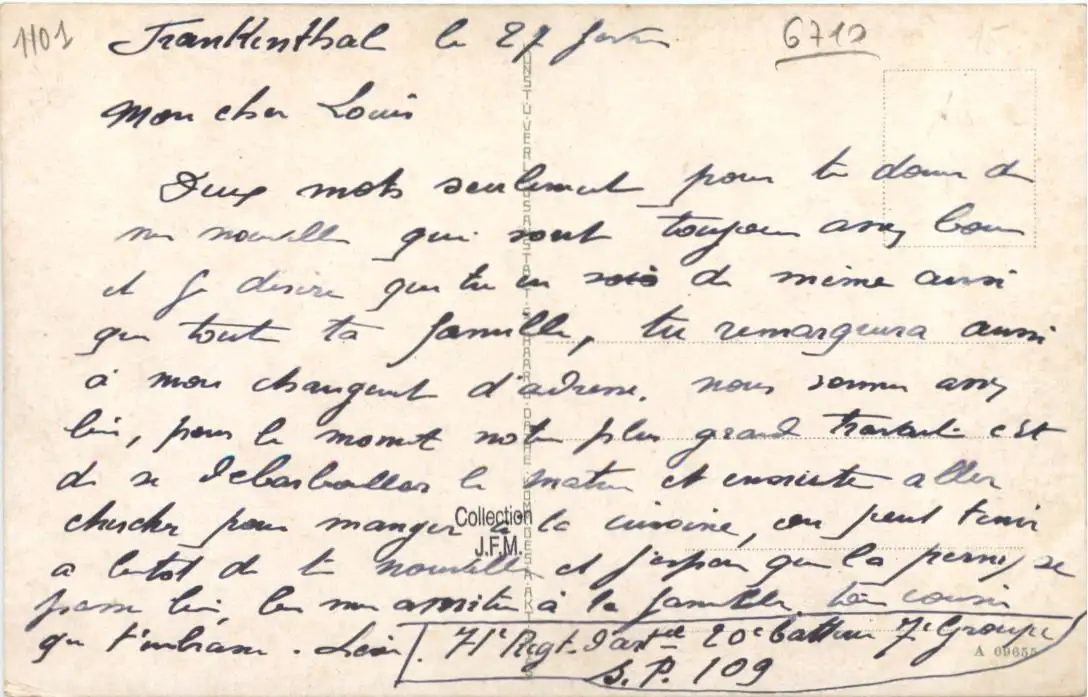 1101
Frankenthal le 27 6710
Mon cher Louis
Deux mots seulement pour te donner de
mes nouvelles qui sont toujours assez bonnes
et je désire que tu en sois de même ainsi
que toute ta famille, tu remarquera aussi
à mon changement d'adresse. nous sommes assez
bien, pour le moment notre plus grand travail c'est
de se débarbouiller le matin et ensuite aller
chercher pour manger à la cuisine, on peut tenir
a bientot de tes nouvelles et j'espère que la se
passe bien, mes amitiés à la famille. ton cousin
qui t'embrasse. 71e Regt. d'artie 20e batterie 7e Groupe
S.P. 109
Collection
J.F.M.
A 09655